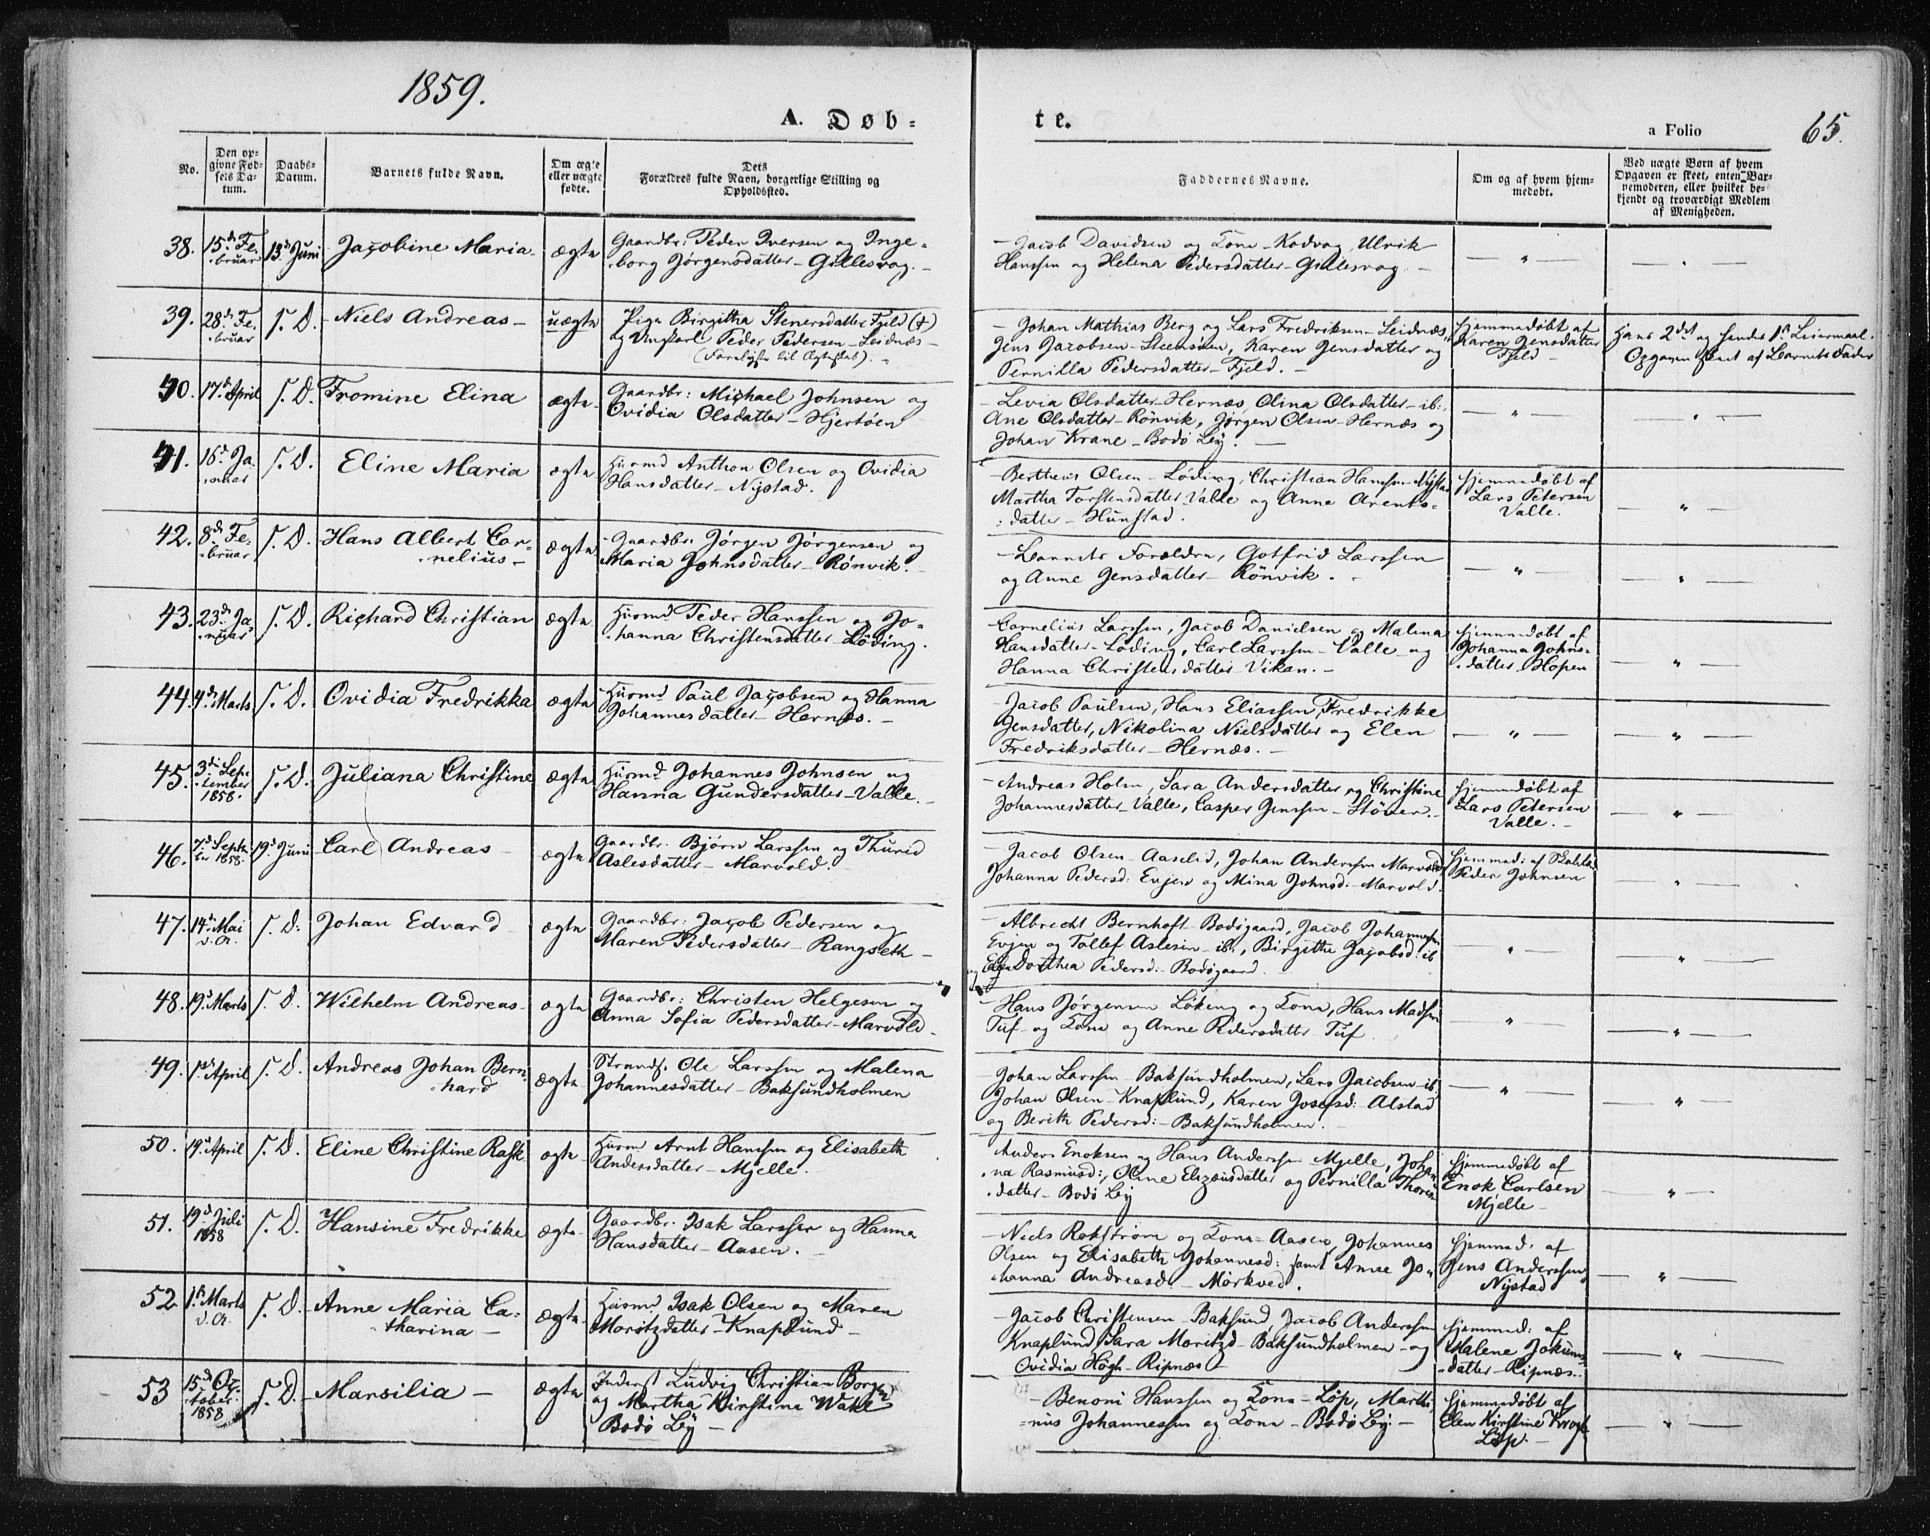 1859.
A. Døb-
te.
a Folio
65.
No.
Den op-
givne Fød-
sels Da-
tum.
Daabs-
Datum.
Barnets fulde Navn.
Om ægte
eller uægte
fødte.
Dets
Forældres fulde Navn, borgerlige Stilling og
Opholdssted.
Faddernes Navne.
Om og af hvem hjem-
medøbt.
Ved uægte Børn af hvem
Opgaven er skeet, enten Bar-
nemoderen, eller hvilket be-
kjendt og troværdigt Medlem
af Menigheden.
38. 15de Fe-
bruar
13d Juni
Jacobine Maria
ægte
Gaardbr: Peder Iversen og Inge-
borg Jørgensdatter - Gillesvag.
Jacob Davidsen og Kona - Kodvag, Ulrik
Hanssen og Helena Pedersdatter - Gillesvag.
— " —
— " —
39. 28de Fe-
bruar
s. D.
Niels Andreas
uægte
Pige Birgitha Stenersdatter Fjeld (†)
og Ungkarl Peder Pedersen - Leidnes
(Forelyste til Ægteskab).
Johan Mathias Berg og Lars Fredriksen - Leidnæs,
Jens Jacobsen - Steensøen, Karen Jensdatter og
Pernilla Pedersdatter - Fjeld.
Hjemmedøbt af
Karen Jensdatter
Fjeld
Hans 2det og hendes 1ste Leiermaal.
Opgaven skeet af Barnets Fader
40. 17de April
s. D.
Fromine Elina
ægte
Gaardbr: Michael Johnsen og
Ovidia Olsdatter - Hjertøen
Levia Olsdatter - Hernæs, Olina Olsdatter - ib:,
Ane Olsdatter - Rönvik, Jørgen Olsen - Hernæs og
Johan Krane - Bodö By.
— " —
— " —
41. 16de Ja-
nuar
s. D.
Eline Maria
ægte
Huusmd Anthon Olsen og Ovidia
Hansdatter - Nystad.
Bertheus Olsen - Löding, Christian Hanssen - Nystad
Martha Torstensdatter Valle og Anne Arents-
datter - Hunstad.
Hjemmedøbt af
Lars Petersen
Valle.
— " —
42. 8de Fe-
bruar
s. D.
Hans Albert Cor-
nelius
ægte
Gaardbr: Jörgen Jörgensen og
Maria Johnsdatter - Rönvik.
Barnets Forældre, Gotfrid Larssen
og Anne Jensdatter - Rönvik.
— " —
— " —
43. 23de Ja-
nuar
s. D.
Richard Christian
ægte
Huusmd Peder Hanssen og Jo-
hanna Christensdatter - Löding.
Cornelius Larssen, Jacob Danielsen og Malena
Hansdatter - Löding, Carl Larssen - Valle og
Hanna Christensdatter Vikan.
Hjemmedøbt af
Johanna Johns-
datter Hopen
— " —
44. 4de Marts
s. D.
Ovidia Fredrikka
ægte
Huusmd Paul Jacobsen og Hanna
Johannesdatter - Hernæs.
Jacob Paulsen, Hans Eliassen, Fredrikke
Jensdatter, Nikolina Nielsdatter og Elen
Fredriksdatter - Hernæs.
— " —
— " —
45. 3die Sep-
tember
1858.
s. D.
Juliana Christine
ægte
Huusmd Johannes Johnsen og
Hanna Gundersdatter - Valle.
Andreas Holm, Sara Andersdatter og Christine
Johannesdatter - Valle, Casper Jenssen - Stöver.
Hjemmedøbt af
Lars Petersen
Valle.
— " —
46. 7de Septb-
br 1858.
19de Juni
Carl Andreas
ægte
Gaardbr. Björn Larssen og Thurid
Aslesdatter - Marvold.
Jacob Olsen - Aaselid, Johan Anderssen Marvold
Johanna Pedersd: Evjen og Mina Johnsd: Marvold.
Hjemmed: af
Peder Johnsen
— " —
47. 14de Mai
v. A.
s. D.
Johan Edvard
ægte
Gaardbr: Jacob Pedersen og
Maren Pedersdatter - Rangseth
Albrecht Bernhoft Bodögaard, Jacob Johannessen
Evjen og Tollef Aslesen - ib:, Birgithe Jacobsd: ib
Dorthea Pedersd: - Bodögaard.
— " —
— " —
48. 19de Marts
s. D.
Wilhelm Andreas
ægte
Gaardbr: Christen Helgesen og
Anna Sofia Pedersdatter - Marvold
Hans Jørgensen Löking og Kona, Hans Madsen
Tuf og Kona og Anne Pedersdatter Tuf.
— " —
— " —
49. 1ste April
s. D.
Andreas Johan Bern-
hard
ægte
Strands. Ole Larssen og Malena
Johannesdatter - Baksundholmen
Johan Larssen - Baksundholmen, Lars Jacobsen - ib
Johan Olsen - Knaplund, Karen Josefsd: Alstad
og Berith Pedersd: - Baksundholmen.
— " —
— " —
50. 19de April
s. D.
Eline Christine Rask
ægte
Huusmd Arnt Hanssen og Elisabeth
Andersdatter - Mjelle.
Anders Enoksen og Hans Anderssen Mjelle, Johan-
na Rasmusd:, Oline Elizeusdatter og Pernilla Thores-
datter - Bodö By
Hjemmedøbt af
Enok Carlsen
Mjelle
— " —
51. 19de Juli
1858
s. D.
Hansine Fredrikke
ægte
Gaardbr. Isak Larssen og Hanna
Hansdatter - Aasen.
Niels Rokström og Kona - Aasen, Johannes
Olsen og Elisabeth Johannesd: samt Anne Jo-
hanna Andreasd: - Mörkved.
Hjemmed: af
Jens Anderssen
Nystad
— " —
52 1ste Marts
v. A.
s. D.
Anne Maria Ca-
tharina
ægte
Huusmd Isak Olsen og Maren
Moritzdatter - Knaplund
Jacob Christensen - Baksund, Jacob Anderssen
Knaplund, Sara Moritzd - Baksundholmen og
Ovidia Högh - Ripnæs
Hjemmed: af
Malene Jokums-
datter - Ripnæs.
— " —
53 15de Oc-
tober
1858
s. D.
Marsilia
ægte
Inderst Ludvig Christian Borgen
og Martha Kirstina Wake
Bodö By
Benoni Hanssen og Kona - Löp, Marthi-
nus Johannessen og Kona - Bodö By
Hjemmedøbt af
Elen Kirstine Krogh
Löp.
— " —